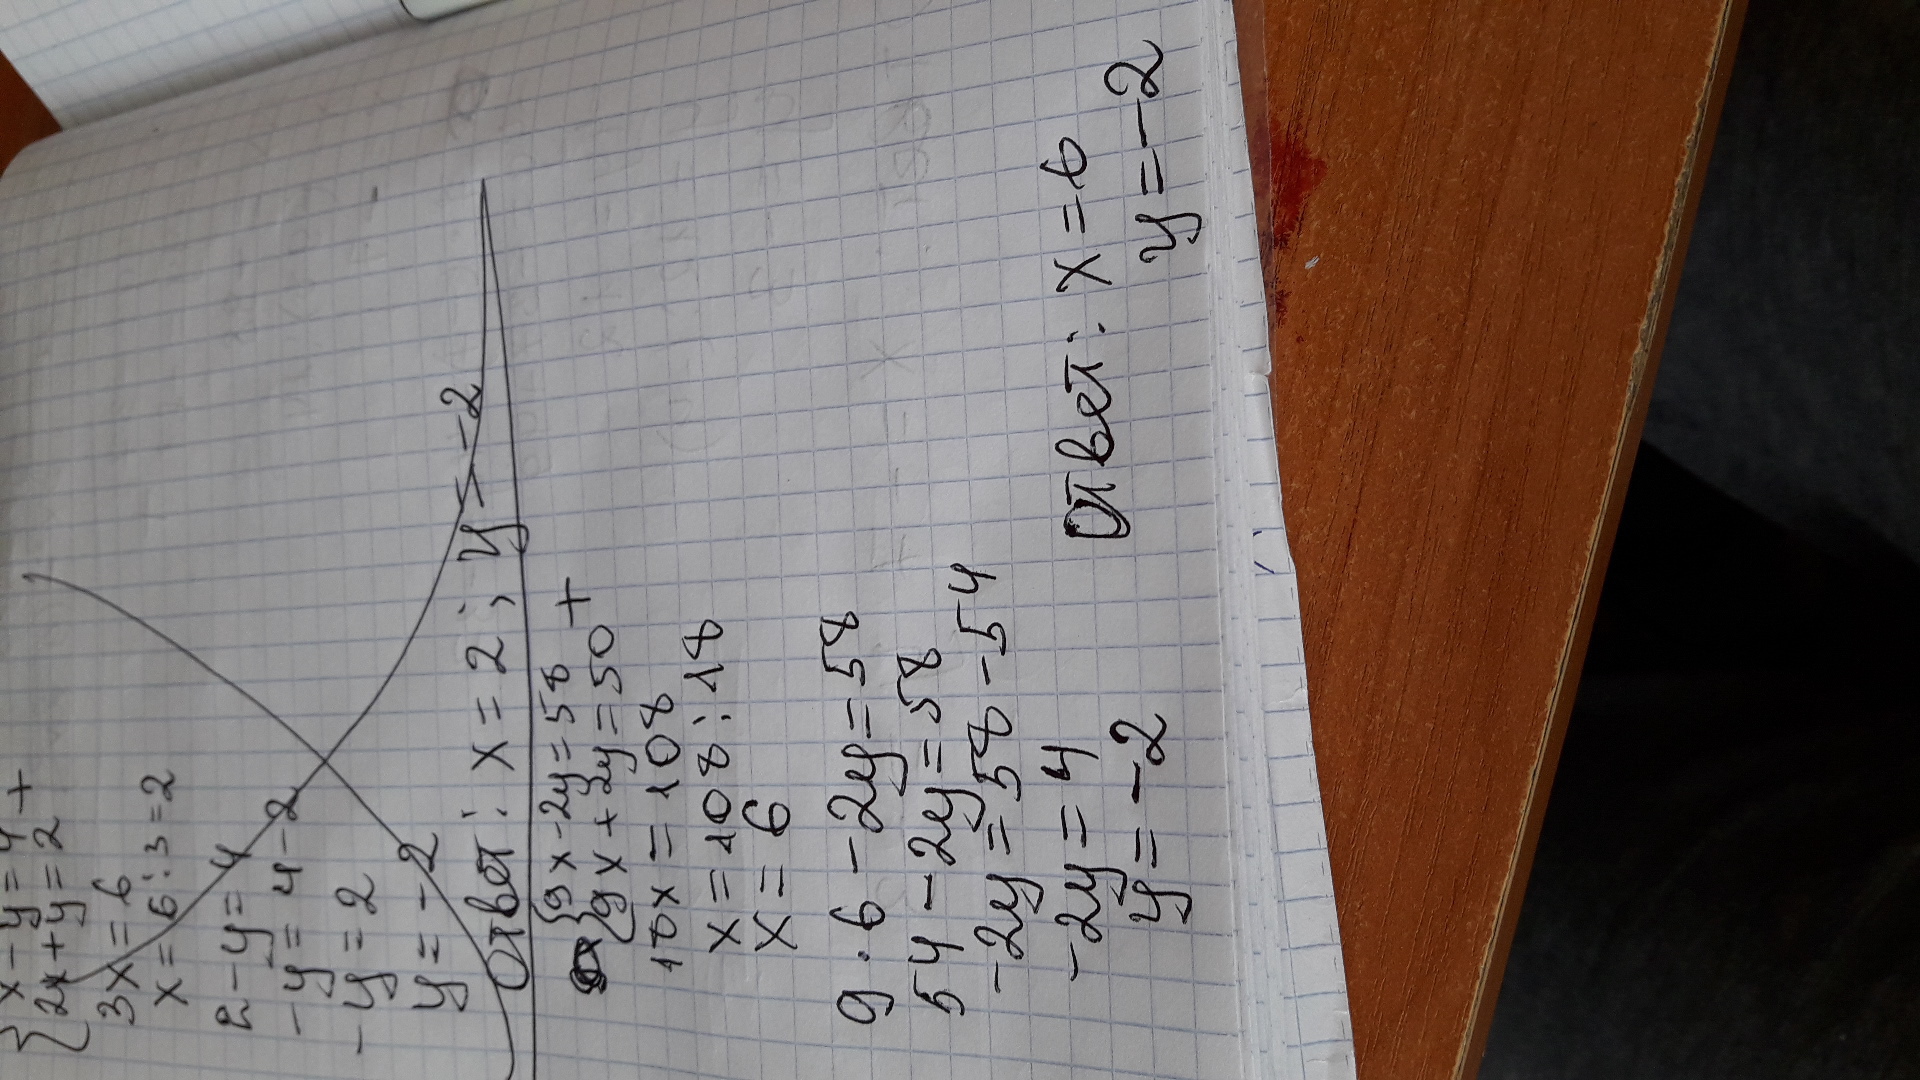 x-y=4 +
2x+y=2
3x=6
x=6:3=2
2-y=4
-y=4-2
-y=2
y=-2
Ответ: x=2; y=-2
9x-2y=58 +
9x+2y=50
18x=108
x=108:18
x=6
9·6-2y=58
54-2y=58
-2y=58-54
-2y=4
y=-2
Ответ: x=6
y=-2